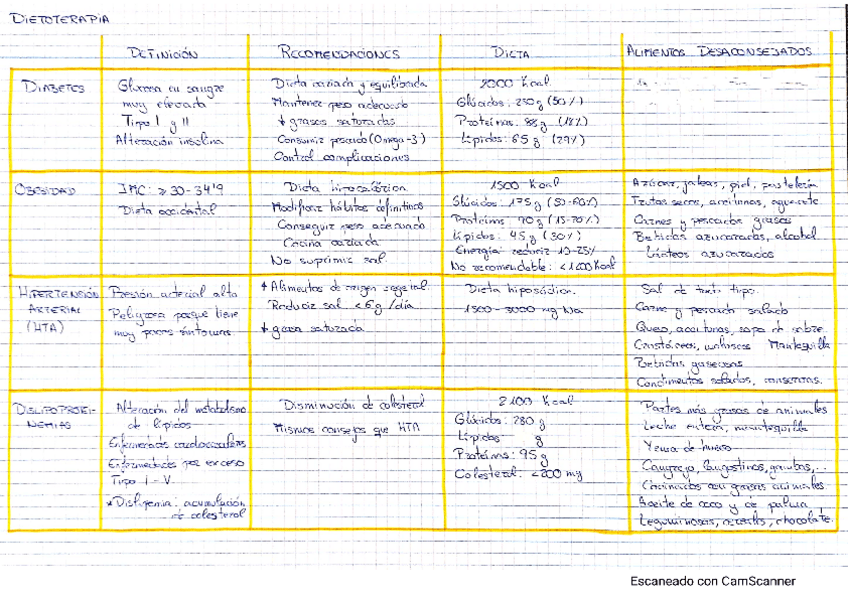 DIETOTERAPIA
DEFINICIÓN
RECOMENDACIONES
DIETA
ALIMENTOS DESACONSEJADOS
DIABETES
Glucosa en sangre
muy elevada
Tipo I y II
Alteración insulina
Dieta variada y equilibrada
Mantener peso adecuado
↓ grasas saturadas
Consumir pescado (Omega-3)
Control complicaciones
2000 Kcal
Glúcidos: 250g (50%)
Proteínas: 88g (18%)
Lípidos: 65g (29%)
OBESIDAD
IMC: ≥30-34'9
Dieta occidental
Dieta hipocalórica
Modificar hábitos definitivos
Conseguir peso adecuado
Cocina variada
No suprimir sal
1500 Kcal
Glúcidos: 175g (50-60%)
Proteínas 70g
Lípidos: 45g (30%)
Energía: reducir 10-25%
No recomendable: <1200 Kcal
Azúcar, jaleas, piel, pastelería
Frutos secos, aceitunas, aguacate
Carnes y pescados grasos
Bebidas azucaradas, alcohol
Lácteos azucarados
HIPERTENSIÓN
ARTERIAL
(HTA)
Presión arterial alta
Peligrosa porque tiene
muy pocos síntomas
↑ Alimentos de origen vegetal.
Reducir sal <6g/día
↓ grasa saturada
Dieta hiposódica.
1500-3000 mg Na
Sal de todo tipo.
Carne y pescado salado
Queso, aceitunas, sopa de sobre
Crustáceos, moluscos Mantequilla
Bebidas gaseosas
Condimentos salados, conservas.
DISLIPOPROTEI-
NEMIAS
Alteración del metabolismo
de lípidos
Enfermedades cardiovasculares
Enfermedades por exceso
Tipo I-V
*Dislipemia: acumulación
de colesterol
Disminución de colesterol
Mismos consejos que HTA
2100 Kcal
Glúcidos: 280g
Lípidos: g
Proteínas: 95g
Colesterol: <200 mg
Partes más grasas de animales
Leche entera, mantequilla
Yema de huevo
Cangrejo, langostinos, gambas,...
Cocinados con grasas animales
Aceite de coco y de palma
Leguminosas, cereales, chocolate.
Escaneado con CamScanner